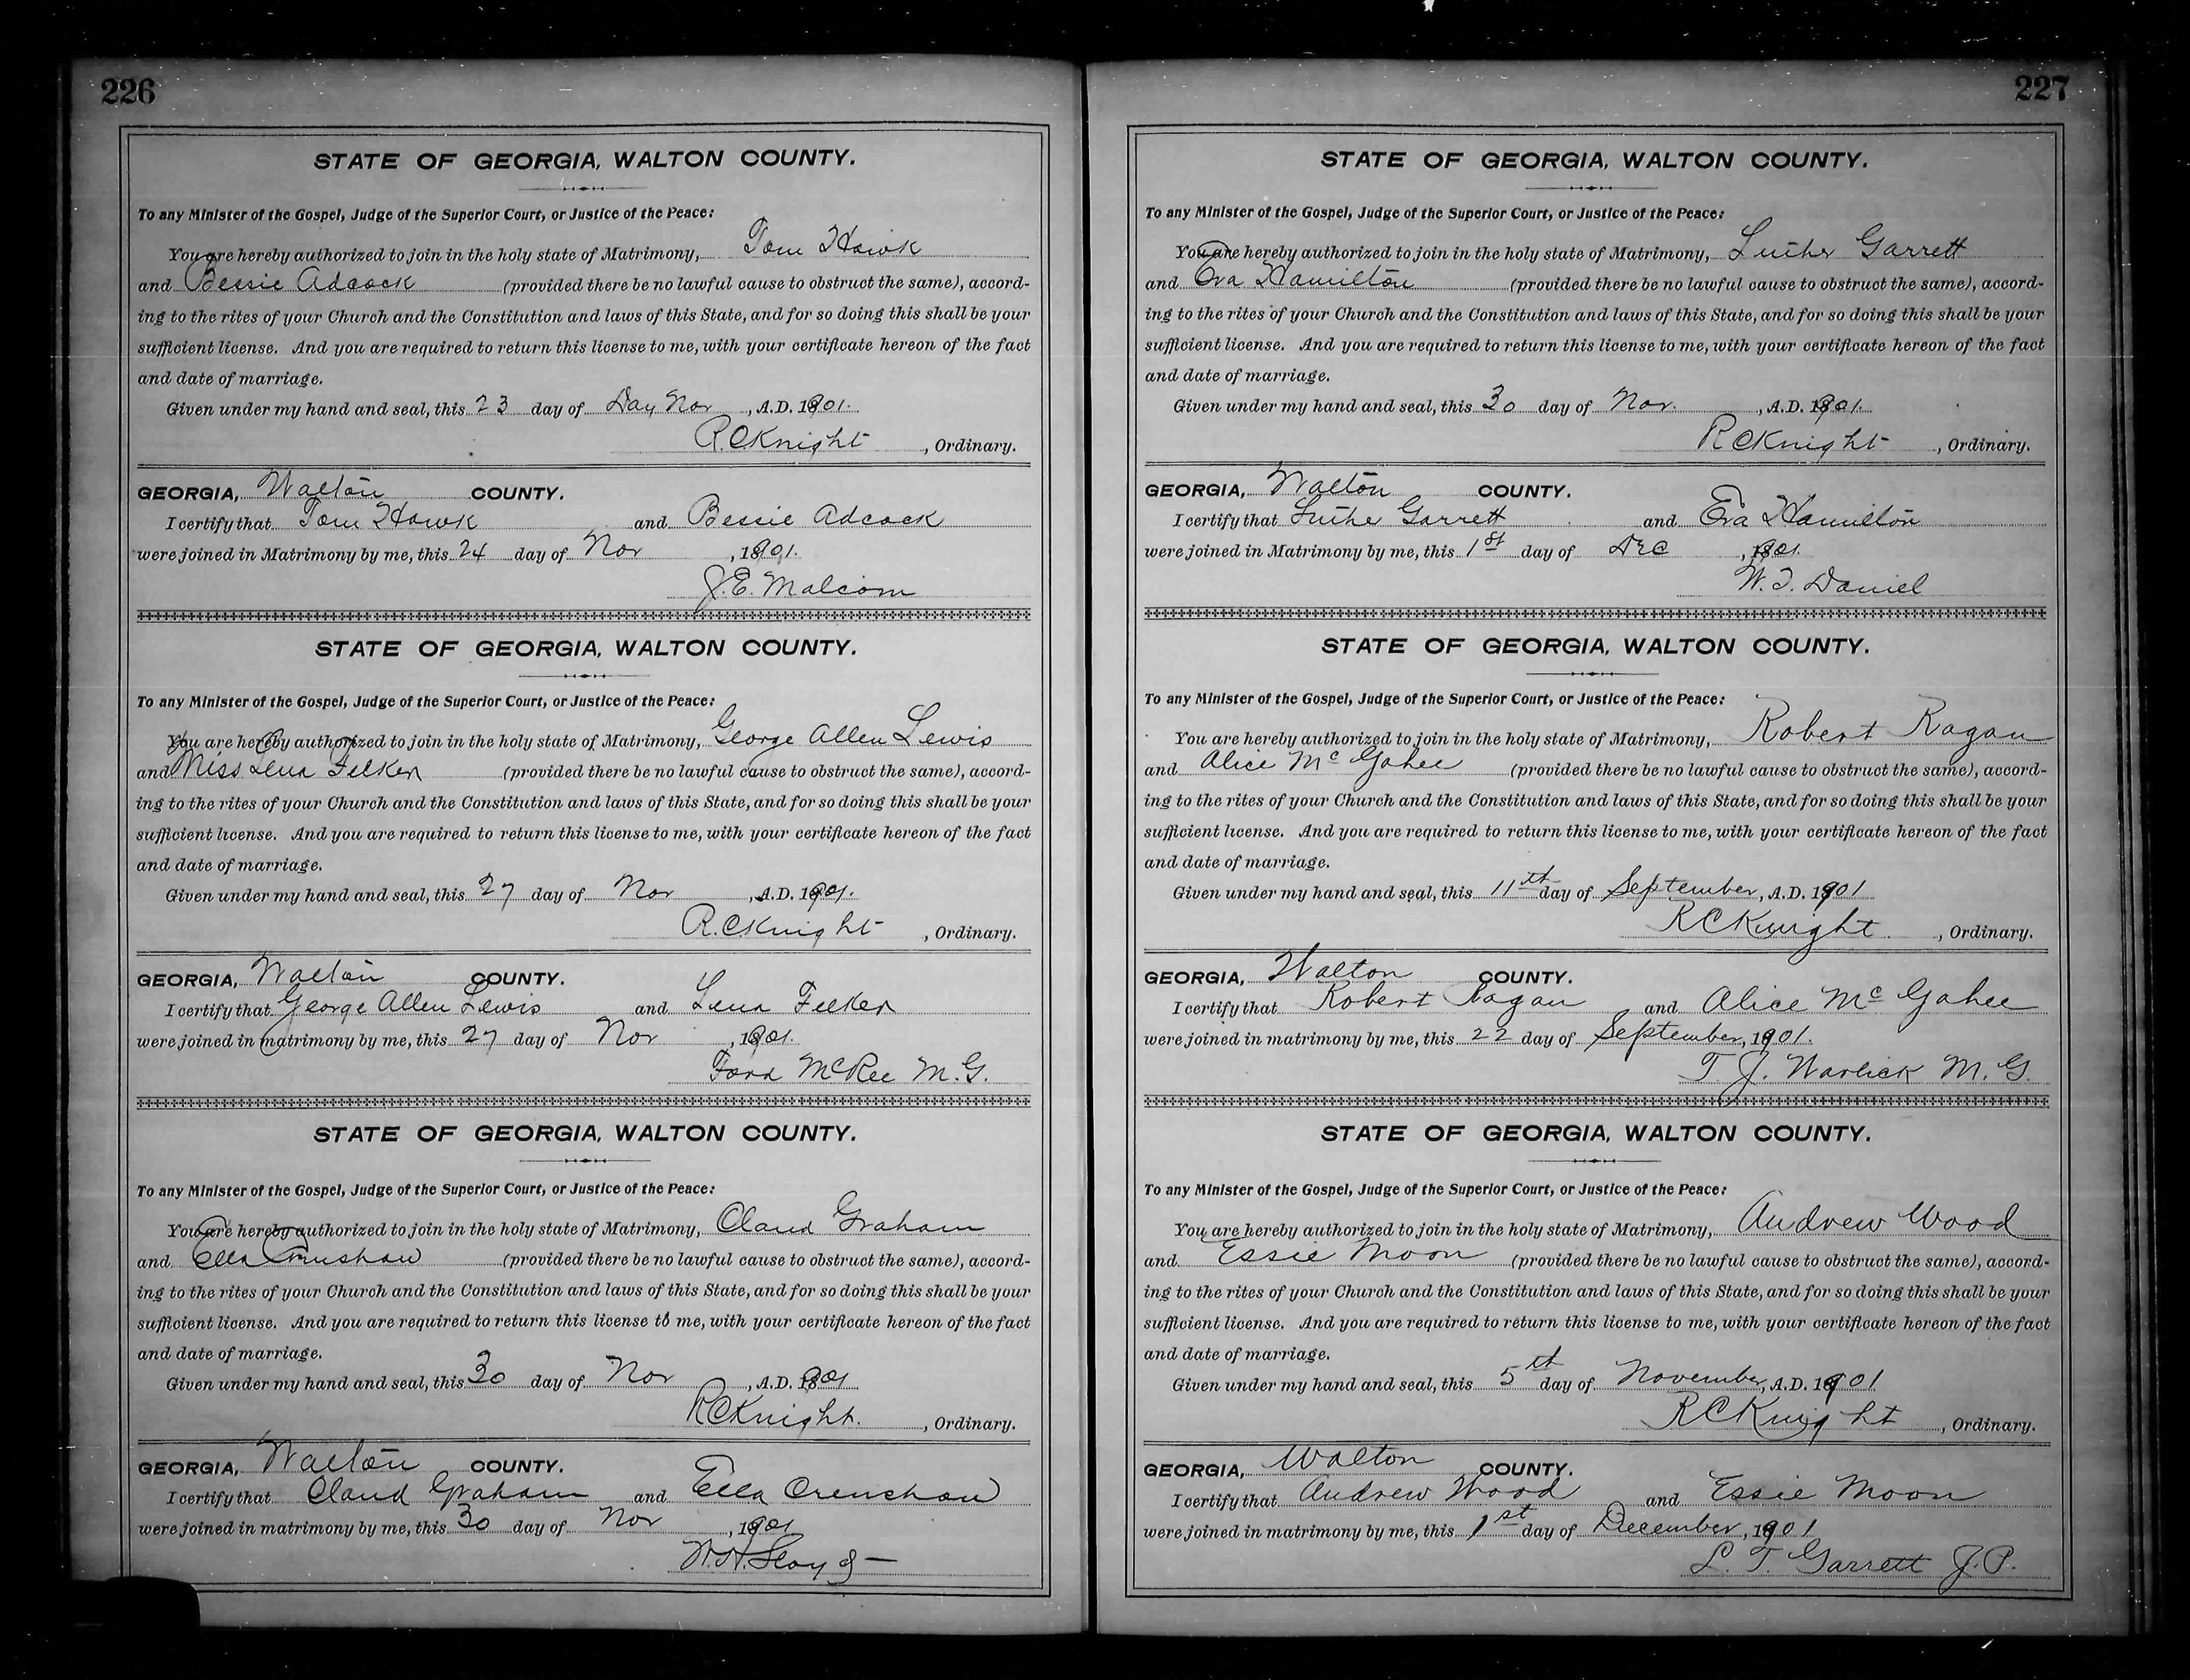 226
STATE OF GEORGIA, WALTON COUNTY.
To any Minister of the Gospel, Judge of the Superior Court, or Justice of the Peace:
You are hereby authorized to join in the holy state of Matrimony, Tom Hawk
and Bessie Adcock (provided there be no lawful cause to obstruct the same), accord-
ing to the rites of your Church and the Constitution and laws of this State, and for so doing this shall be your
sufficient license. And you are required to return this license to me, with your certificate hereon of the fact
and date of marriage.
Given under my hand and seal, this 23 day of Day Nov, A.D. 1901.
R.C Knight, Ordinary.
GEORGIA, Walton COUNTY.
I certify that Tom Hawk and Bessie Adcock
were joined in Matrimony by me, this 24 day of Nov, 1901.
J.E. Malcom
STATE OF GEORGIA, WALTON COUNTY.
To any Minister of the Gospel, Judge of the Superior Court, or Justice of the Peace:
You are hereby authorized to join in the holy state of Matrimony, George Allen Lewis
and Miss Lena Felker (provided there be no lawful cause to obstruct the same), accord-
ing to the rites of your Church and the Constitution and laws of this State, and for so doing this shall be your
sufficient license. And you are required to return this license to me, with your certificate hereon of the fact
and date of marriage.
Given under my hand and seal, this 27 day of Nov, A.D. 1901.
R.C Knight, Ordinary.
GEORGIA, Walton COUNTY.
I certify that George Allen Lewis and Lena Felker
were joined in matrimony by me, this 27 day of Nov, 1901.
Ford McRee M.G.
STATE OF GEORGIA, WALTON COUNTY.
To any Minister of the Gospel, Judge of the Superior Court, or Justice of the Peace:
You are hereby authorized to join in the holy state of Matrimony, Claud Graham
and Ella Crenshaw (provided there be no lawful cause to obstruct the same), accord-
ing to the rites of your Church and the Constitution and laws of this State, and for so doing this shall be your
sufficient license. And you are required to return this license to me, with your certificate hereon of the fact
and date of marriage.
Given under my hand and seal, this 30 day of Nov, A.D. 1901
RC Knight., Ordinary.
GEORGIA, Walton COUNTY.
I certify that Claud Graham and Ella Crenshaw
were joined in matrimony by me, this 30 day of Nov, 1901
227
STATE OF GEORGIA, WALTON COUNTY.
To any Minister of the Gospel, Judge of the Superior Court, or Justice of the Peace:
You are hereby authorized to join in the holy state of Matrimony, Luther Garrett
and Eva Hamilton (provided there be no lawful cause to obstruct the same), accord-
ing to the rites of your Church and the Constitution and laws of this State, and for so doing this shall be your
sufficient license. And you are required to return this license to me, with your certificate hereon of the fact
and date of marriage.
Given under my hand and seal, this 30 day of Nov., A.D. 1901.
RC Knight, Ordinary.
GEORGIA, Walton COUNTY.
I certify that Luther Garrett and Eva Hamilton
were joined in Matrimony by me, this 1st day of Dec, 1901.
W.T. Daniel
STATE OF GEORGIA, WALTON COUNTY.
To any Minister of the Gospel, Judge of the Superior Court, or Justice of the Peace:
You are hereby authorized to join in the holy state of Matrimony, Robert Ragan
and Alice McGahee (provided there be no lawful cause to obstruct the same), accord-
ing to the rites of your Church and the Constitution and laws of this State, and for so doing this shall be your
sufficient license. And you are required to return this license to me, with your certificate hereon of the fact
and date of marriage.
Given under my hand and seal, this 11th day of September, A.D. 1901
RC Knight, Ordinary.
GEORGIA, Walton COUNTY.
I certify that Robert Ragan and Alice McGahee
were joined in matrimony by me, this 22 day of September, 1901.
T. J. Warlick M. G.
STATE OF GEORGIA, WALTON COUNTY.
To any Minister of the Gospel, Judge of the Superior Court, or Justice of the Peace:
You are hereby authorized to join in the holy state of Matrimony, Andrew Wood
and Essie Moon (provided there be no lawful cause to obstruct the same), accord-
ing to the rites of your Church and the Constitution and laws of this State, and for so doing this shall be your
sufficient license. And you are required to return this license to me, with your certificate hereon of the fact
and date of marriage.
Given under my hand and seal, this 5th day of November, A.D. 1901
RC Knight, Ordinary.
GEORGIA, Walton COUNTY.
I certify that Andrew Wood and Essie Moon
were joined in matrimony by me, this 1st day of December, 1901
L. T. Garrett J.P.